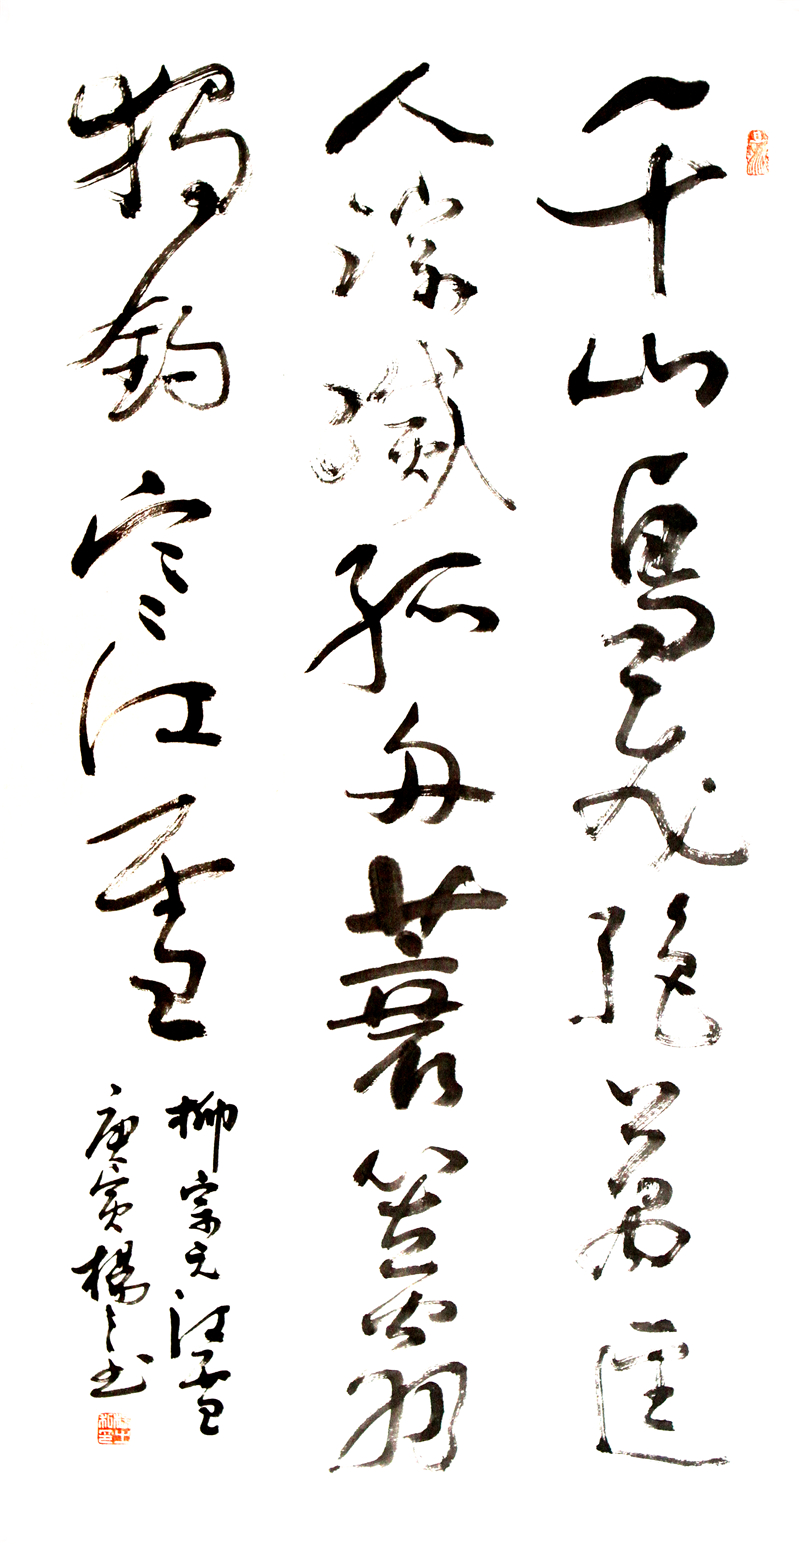 千山鳥飛絕萬逕
人蹤滅孤舟蓑笠翁
獨釣寒江雪
柳宗元江雪
庚寅楊